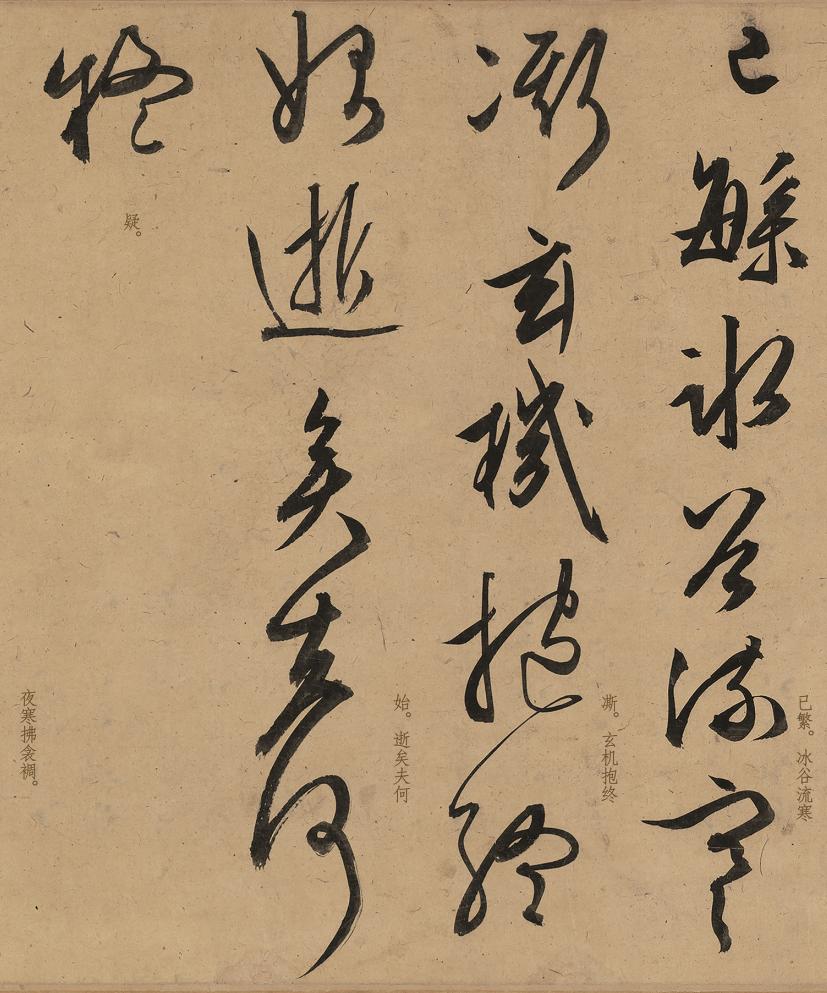 已繁。冰谷流寒
已緐冰谷流寒
凘。玄机抱终
凘玄機抱終
始。逝矣夫何
始逝矣夫何
疑。
疑
夜寒拂衾裯。